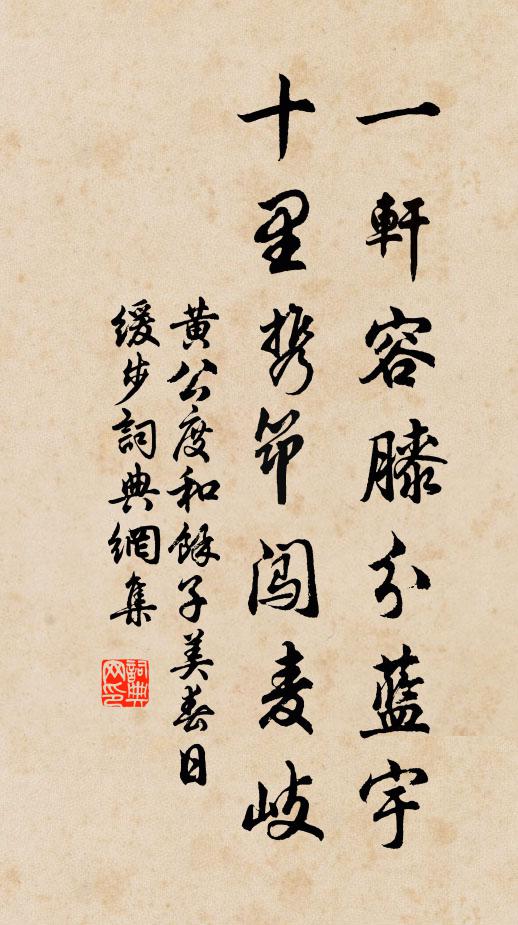 一軒容膝分藍宇
十里携筇闯麦岐
黄公度和餘子美春日
緩步詞典網集
詞典
网印